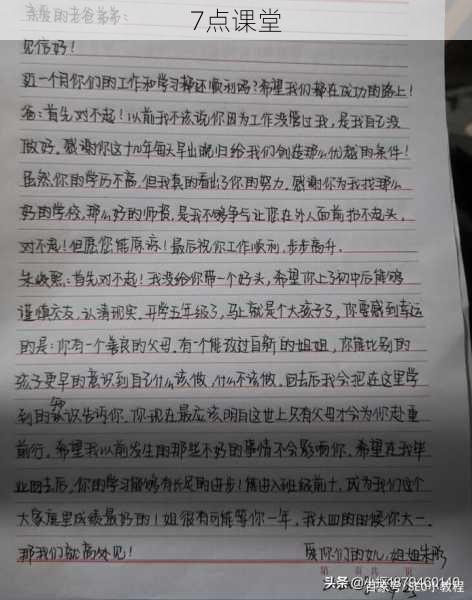 7点课堂
亲爱的老爸弟弟:
见信好!
近一个月你们的工作和学习都还顺利吗?希望我们都在成功的路上!
爸:首先对不起!以前我不该说你因为工作没管过我,是我自己没
做好。感谢你这十几年每天早出晚归给我们创在那么优越的条件!
虽然你的学历不高,但我真的看出了你的努力,感谢你为我找那么
好的学校,那么好的师资,是我不够争气让您在外人面前抬不起头,
对不起!但愿您能原谅!最后祝你工作顺利,步步高升。
朱 :首先对不起!我没给你带一个好头,希望你上了初中后能够
谨慎交友,认清现实。开学五年级了,马上就是个大孩子了,你要感到幸运
的是:你有一个善良的父母,有一个能改过自新的姐姐,你能比别的
孩子更早的意识到自己什么该做,什么不该做。回去后我会把在这里学
到的知识告诉你。你现在最应该明白这世上只有父母才会为你赴重
前行。希望我以前发生的那些不好的事情不会影响你。希望在我毕
业回去后,你的学习能够有长足的进步!能进入班级前十,成为我们这个
大家庭里成绩最好的!姐很有可能等你一年,我大四的时候你大一。
那我们就高处见! 爱你们的女儿,姐姐朱
第 页 共 页
头条
百家号/SEO小教程